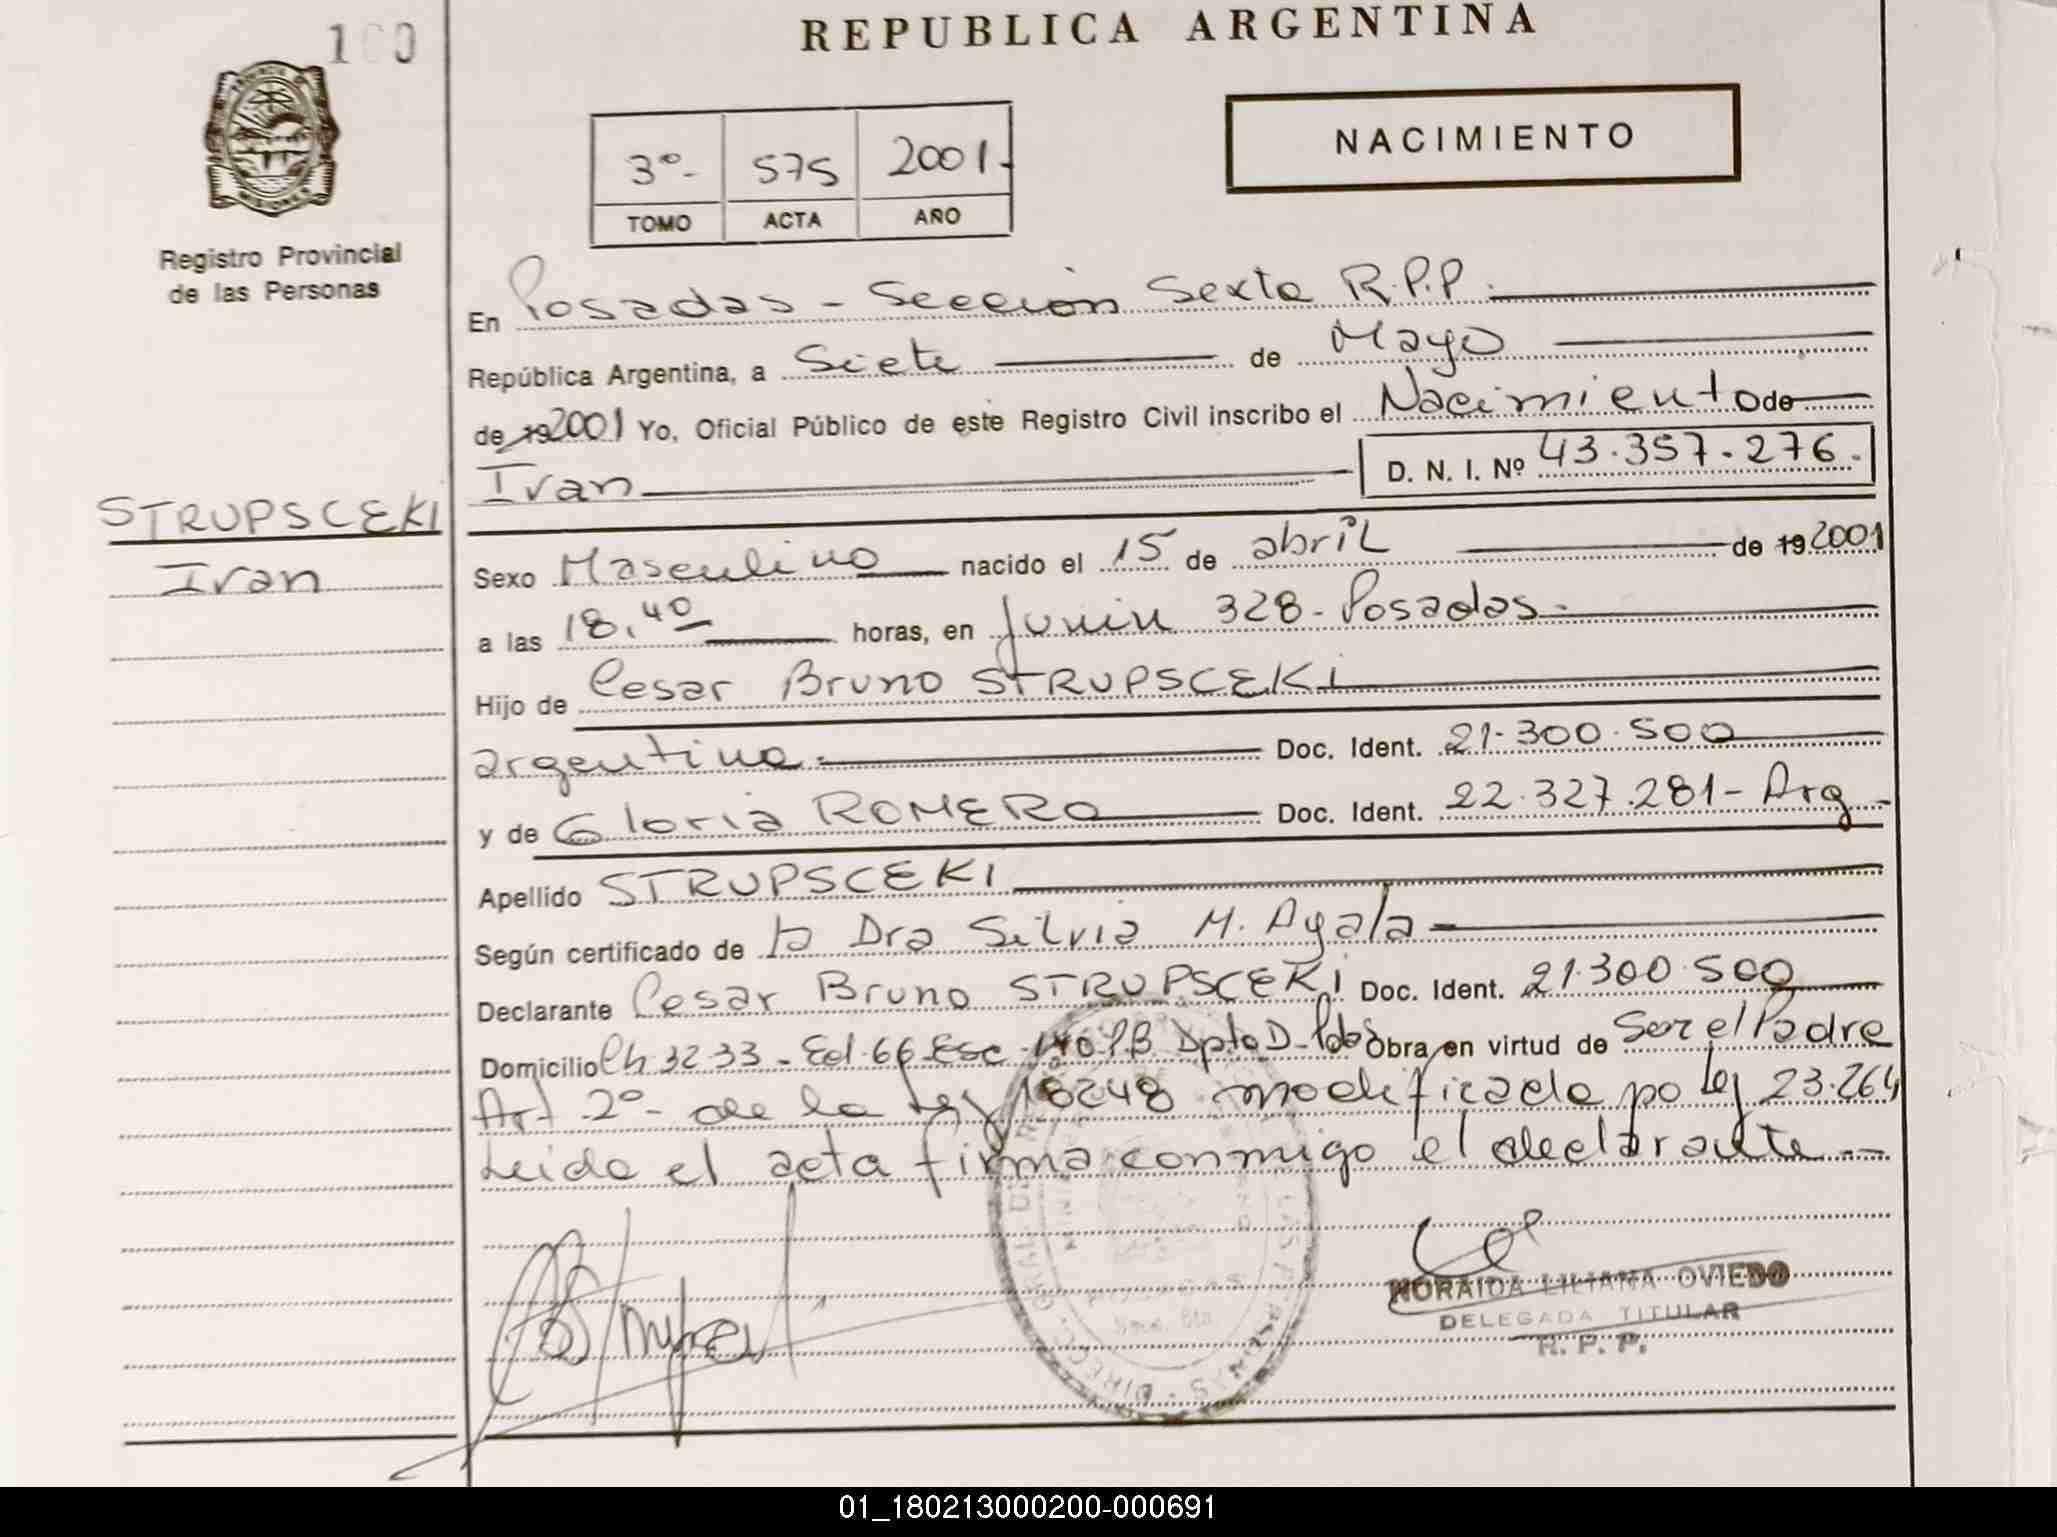 REPUBLICA ARGENTINA
PROVINCIA DE MISIONES
Registro Provincial
de las Personas
3º- 575 2001.-
TOMO ACTA AÑO
NACIMIENTO
En Posadas - Sección Sexta R.P.P.
República Argentina, a Siete de Mayo
de 19 2001 Yo, Oficial Público de este Registro Civil inscribo el Nacimiento de
Ivan D. N. I. Nº 43.357.276.
STRUPSCEKI
Ivan
Sexo Masculino nacido el 15 de abril de 19 2001
a las 18,40 horas, en Junin 328 - Posadas.-
Hijo de Cesar Bruno STRUPSCEKI
argentino.- Doc. Ident. 21.300.500
y de Gloria ROMERO Doc. Ident. 22.327.281 - Arg -
Apellido STRUPSCEKI
Según certificado de la Dra Silvia M. Ayala
Declarante Cesar Bruno STRUPSCEKI Doc. Ident. 21.300.500
Domicilio Ch 32-33 - Ed. 66 - Esc P.B. Dpto D - Pdas Obra en virtud de Ser el Padre
Art 2º- de la ley 18248 modificada po Ley 23.264
Leida el acta firma conmigo el declarante.--
NORAIDA LILIANA OVIEDO
DELEGADA TITULAR
R. P. P.
01_180213000200-000691